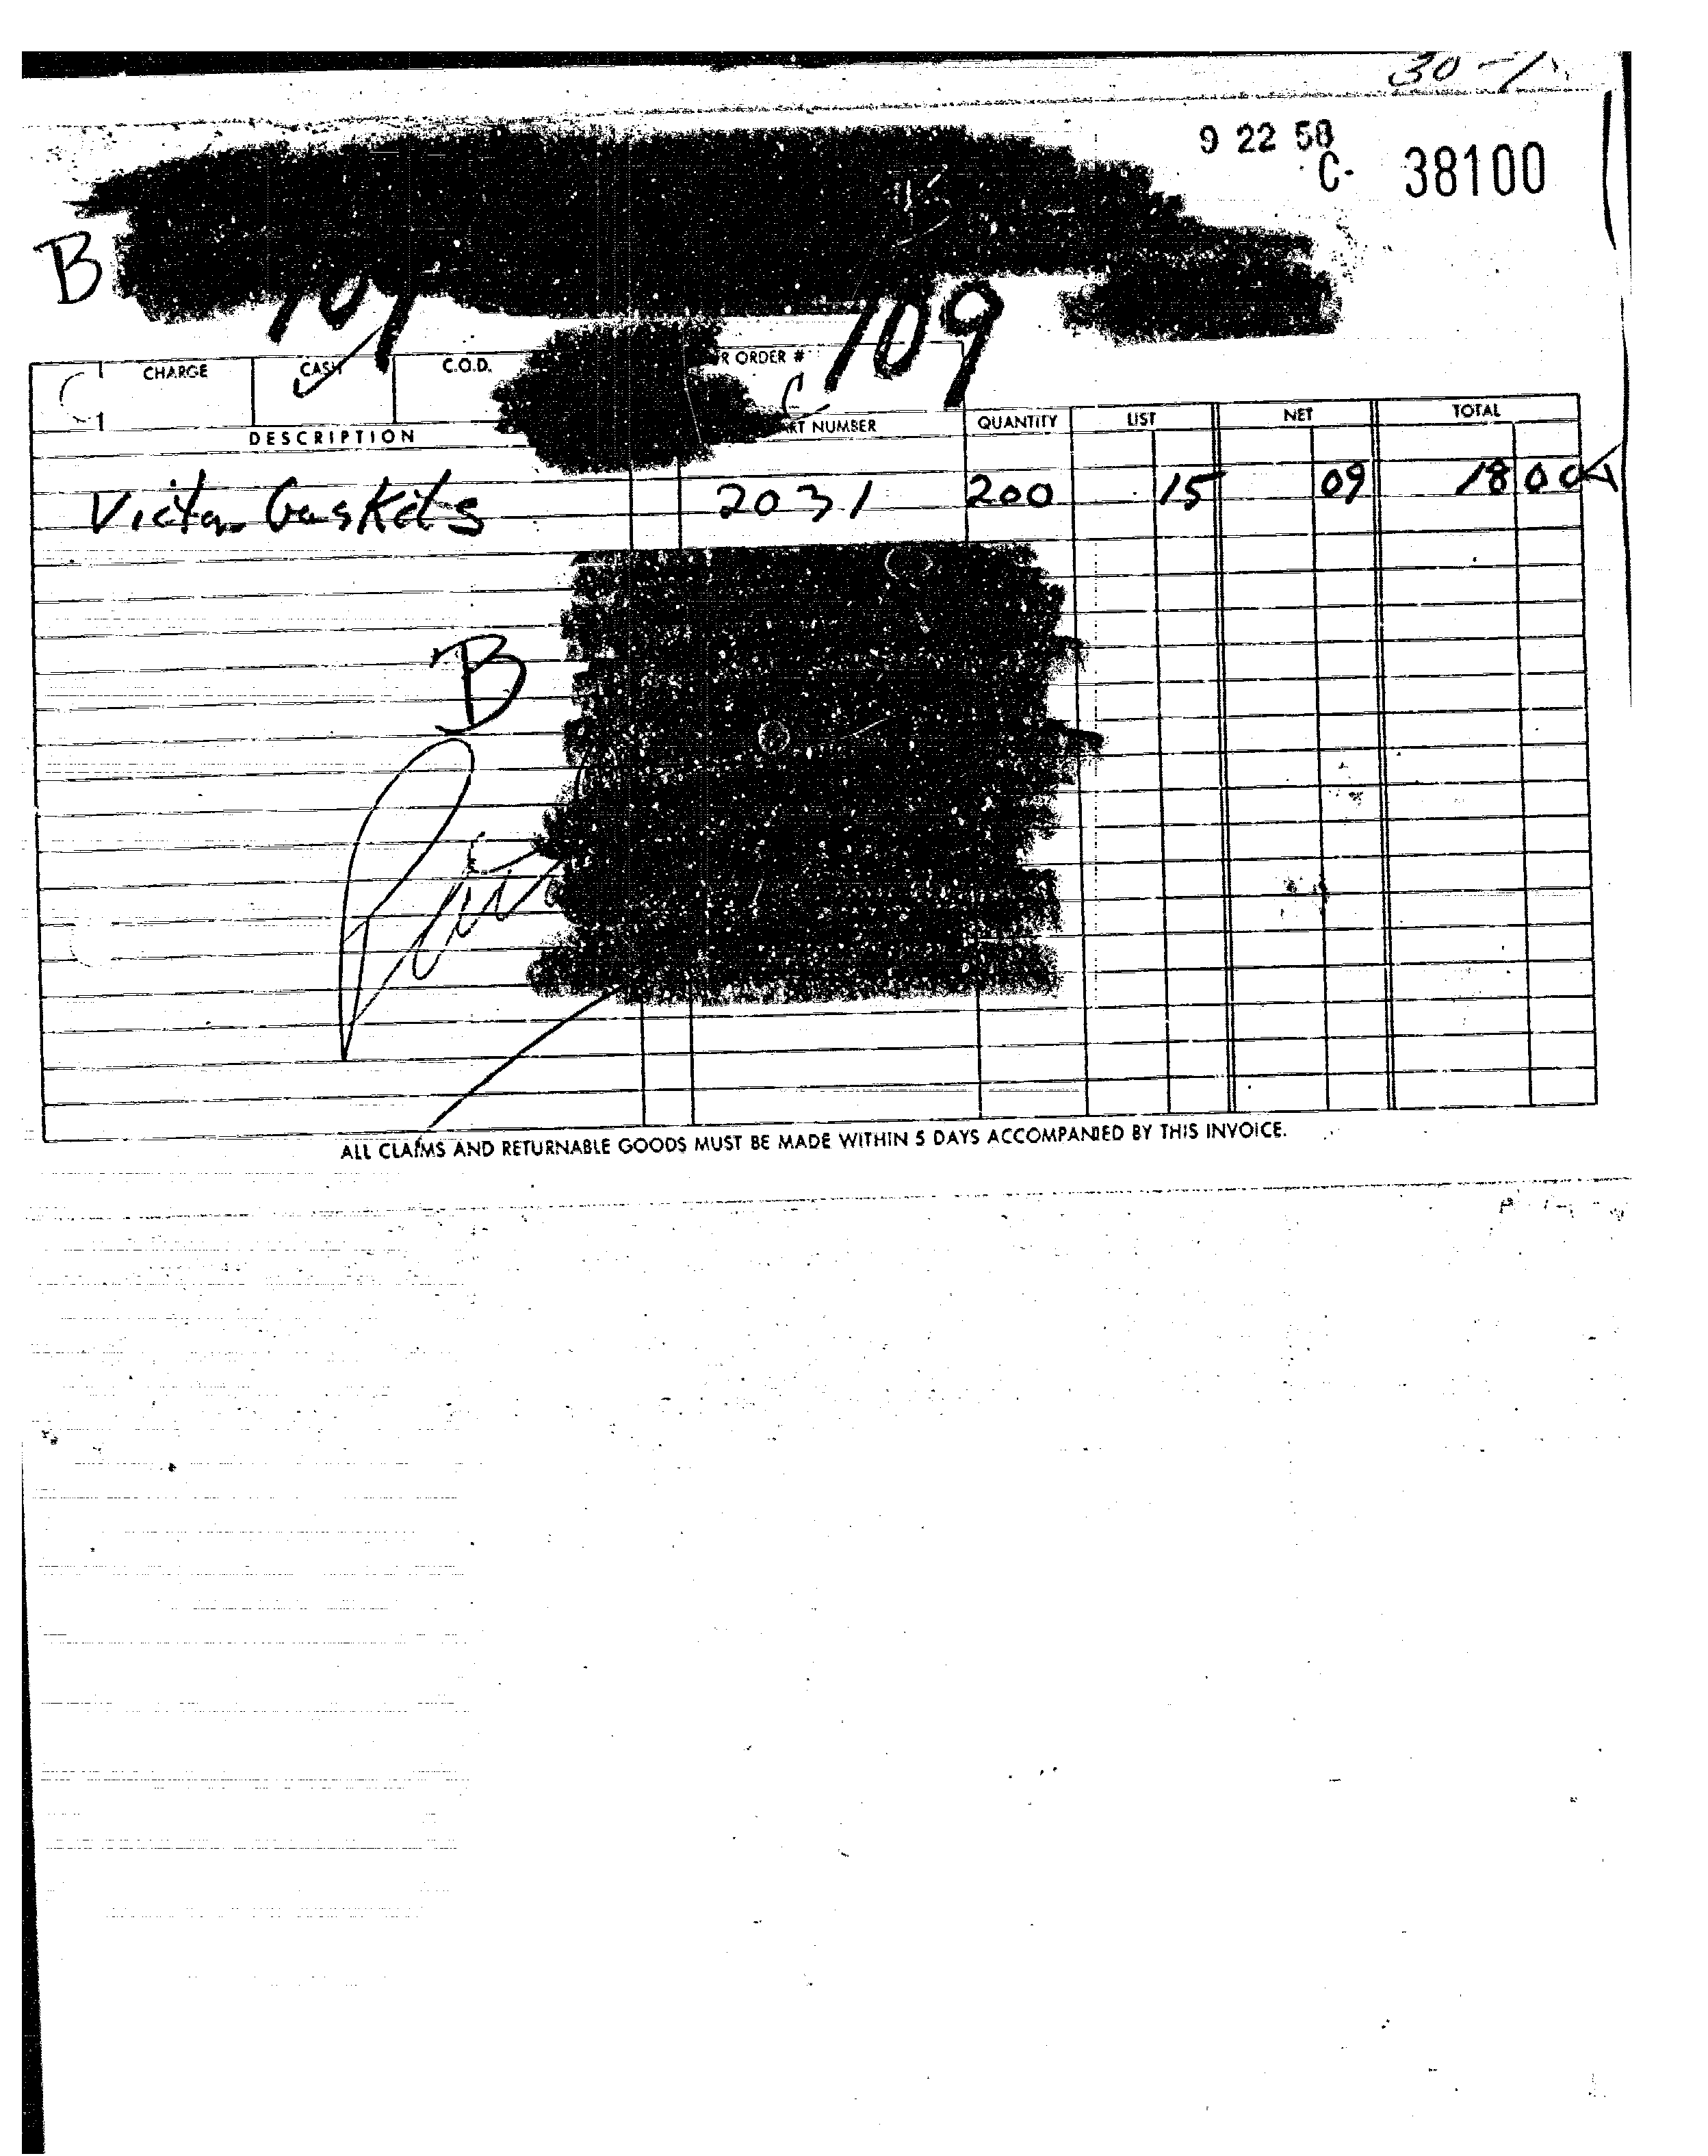 30-1
9 22 58
C- 38100
B
109 109
CHARGE CASH C.O.D. R ORDER #
DESCRIPTION RT NUMBER QUANTITY LIST NET TOTAL
Victor Gaskets 2031 200 15 09 18 00
B
ALL CLAIMS AND RETURNABLE GOODS MUST BE MADE WITHIN 5 DAYS ACCOMPANIED BY THIS INVOICE.